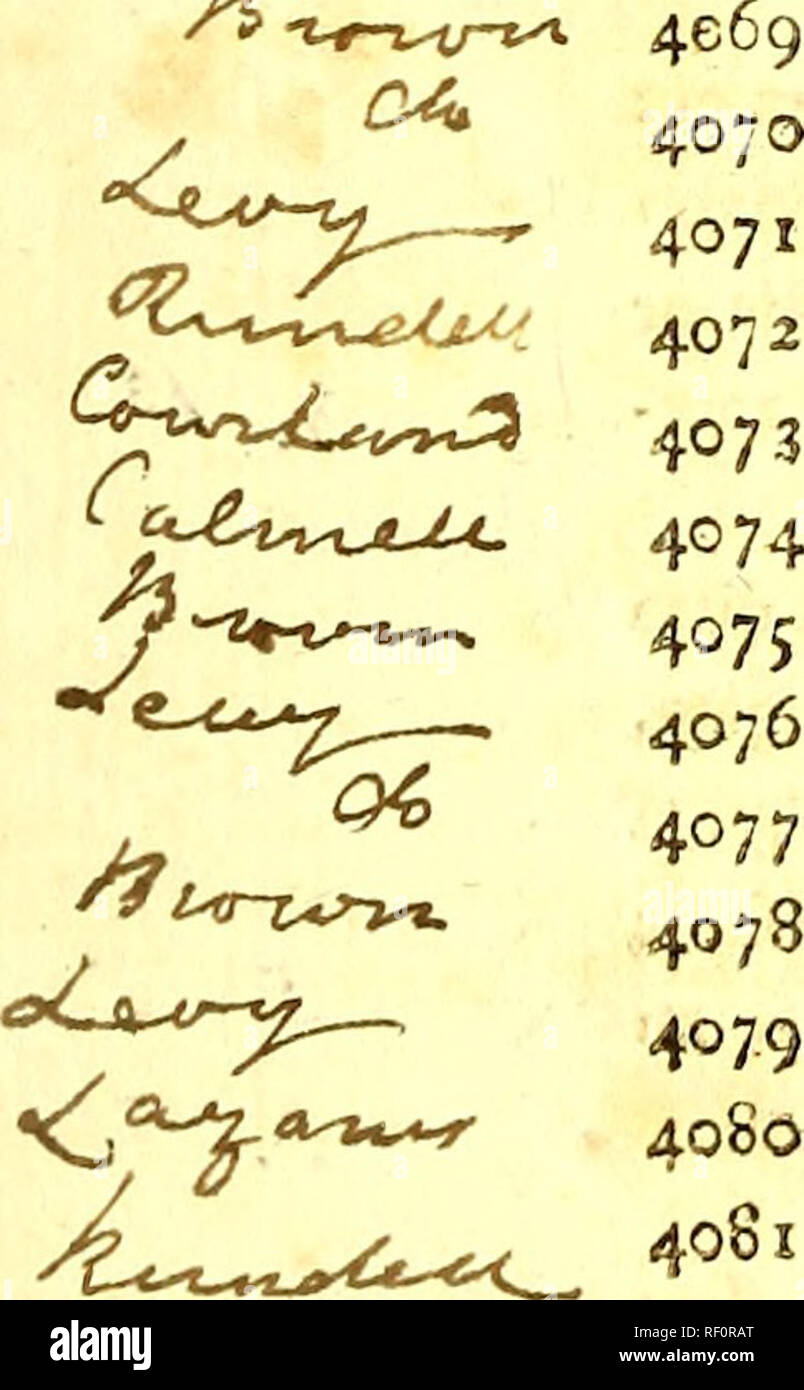 Brown 4069
Do 4070
Levy 4071
Rundell 4072
Courland 4073
Calmell 4074
Brown 4075
Levy 4076
Do 4077
Brown 4078
Levy 4079
Lazarus 4080
Rundell 4081
alamy
Image ID: RF0RAT
www.alamy.com